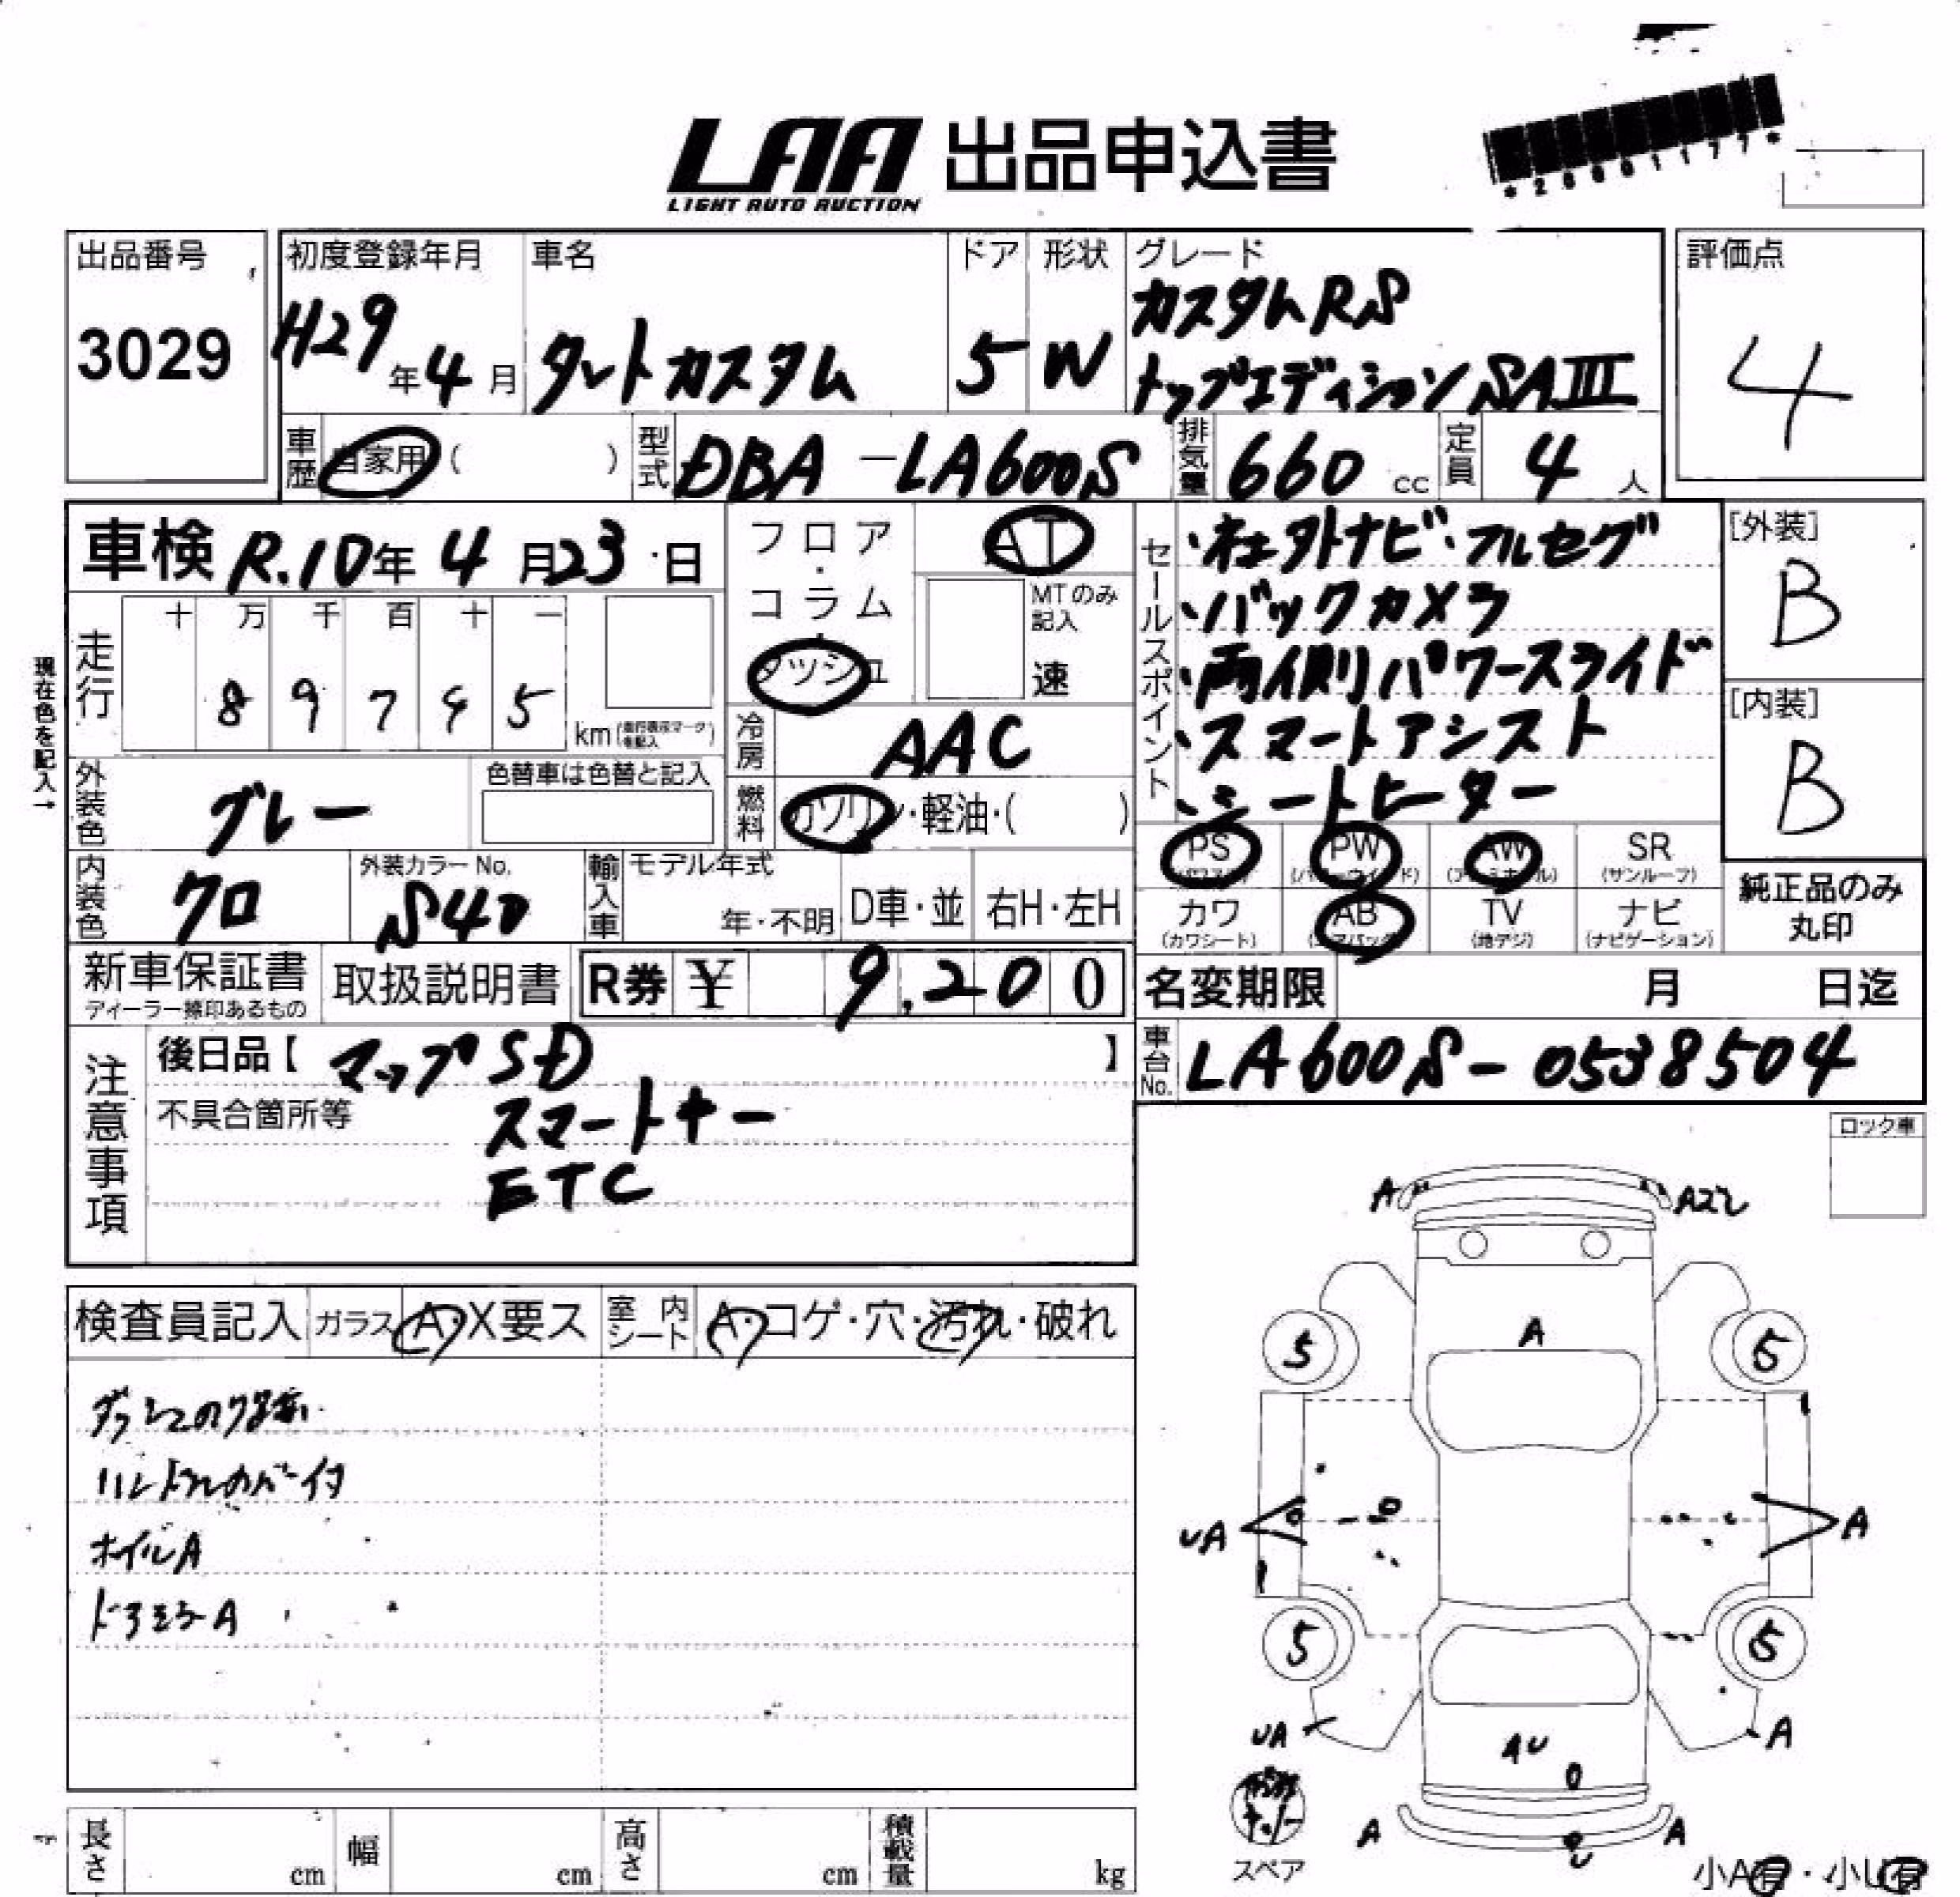 LAA 出品申込書
LIGHT AUTO AUCTION
*2601177*
出品番号
3029
初度登録年月
H29年4月
車名
タントカスタム
ドア
5
形状
W
グレード
カスタムRS
トップエディションSAIII
評価点
4
車歴
自家用 ( )
型式
DBA-LA600S
排気量
660 cc
定員
4 人
車検 R.10年4月23日
フロア・コラム・ダッシュ
AT
MTのみ記入
速
セールスポイント
・社外ナビ・フルセグ
・バックカメラ
・両側パワースライド
・スマートアシスト
・シートヒーター
[外装]
B
[内装]
B
現在色を記入→
走行
十 万 千 百 十 一
km
冷房
AAC
外装色
グレー
色替車は色替と記入
燃料
ガソリン・軽油・( )
PS
PW
AW
SR
(サンルーフ)
内装色
クロ
外装カラーNo.
S40
輸入車
モデル年式
年・不明
D車・並
右H・左H
カワ
(カワシート)
AB
(エアバッグ)
TV
(地デジ)
ナビ
(ナビゲーション)
純正品のみ
丸印
新車保証書
ディーラー捺印あるもの
取扱説明書
R券 ¥ 9,200
名変期限 月 日迄
注意事項
後日品【マップSD】
不具合箇所等
スマートキー
ETC
車台No.
LA600S-0538504
ロック車
検査員記入
ガラス
A・X要ス
室内シート
A・コゲ・穴・汚れ・破れ
ハンドルカバー付
ホイルA
ドアミラーA
A
A
5
5
UA
A
5
5
UA
A
AU
A
A
スペア
小A有・小U有
長さ cm
幅 cm
高さ cm
積載量 kg